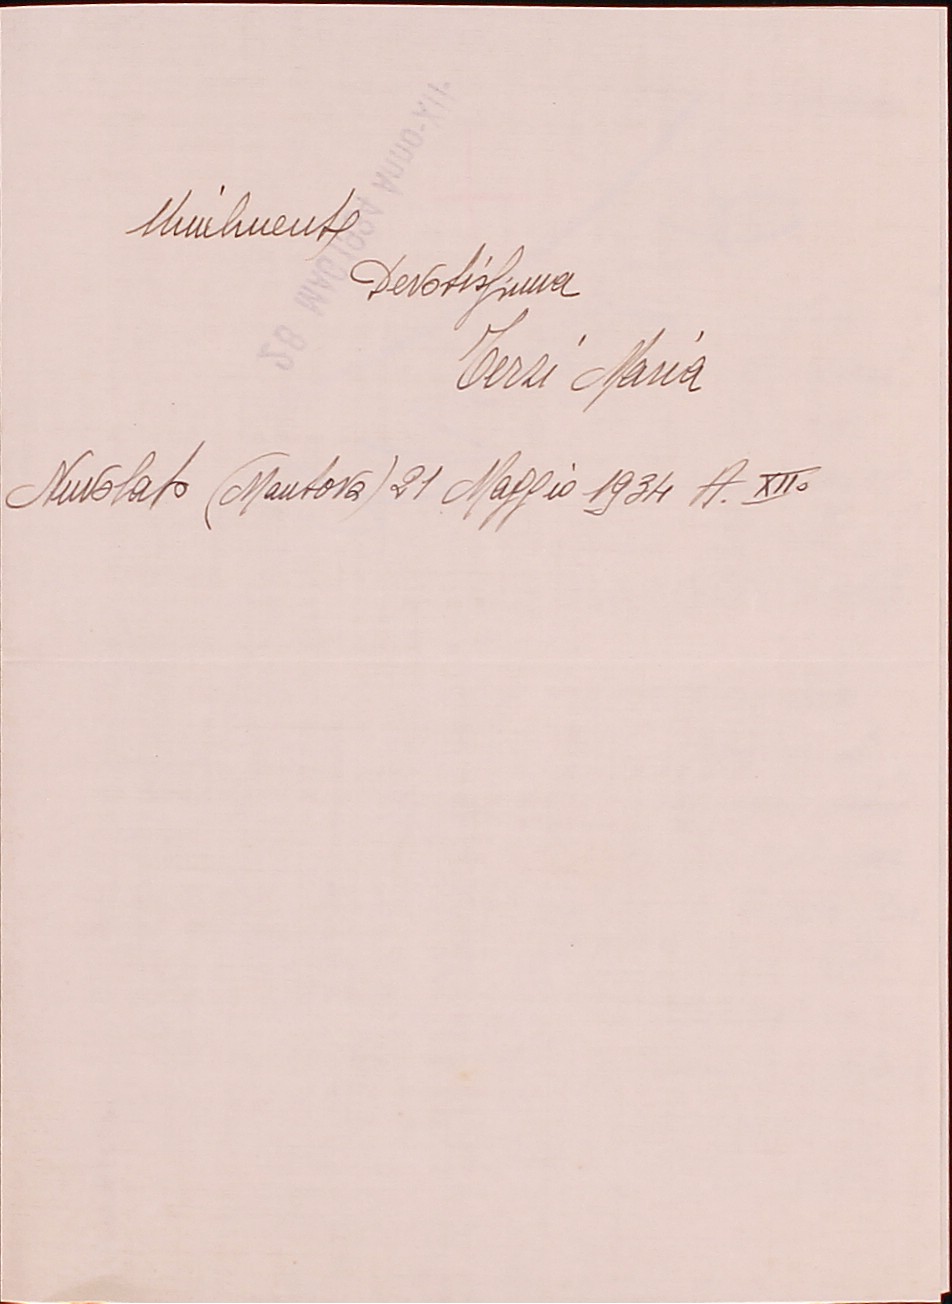 Umilmente
Devotissima
Terzi Maria
Nuvolato (Mantova) 21 Maggio 1934 A. XIIo
28 MAG 1934 Anno XII.